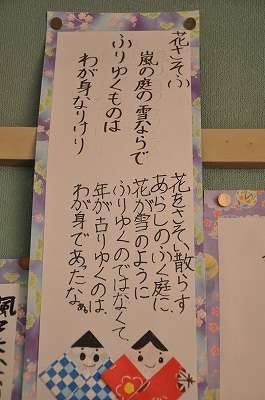 花さそふ
嵐の庭の雪ならで
ふりゆくものは
わが身なりけり
花をさそい散らす
あらしのふく庭に、
花が雪のように
ふりゆくのではなくて、
年が古りゆくのは、
わが身であったなぁ。
風